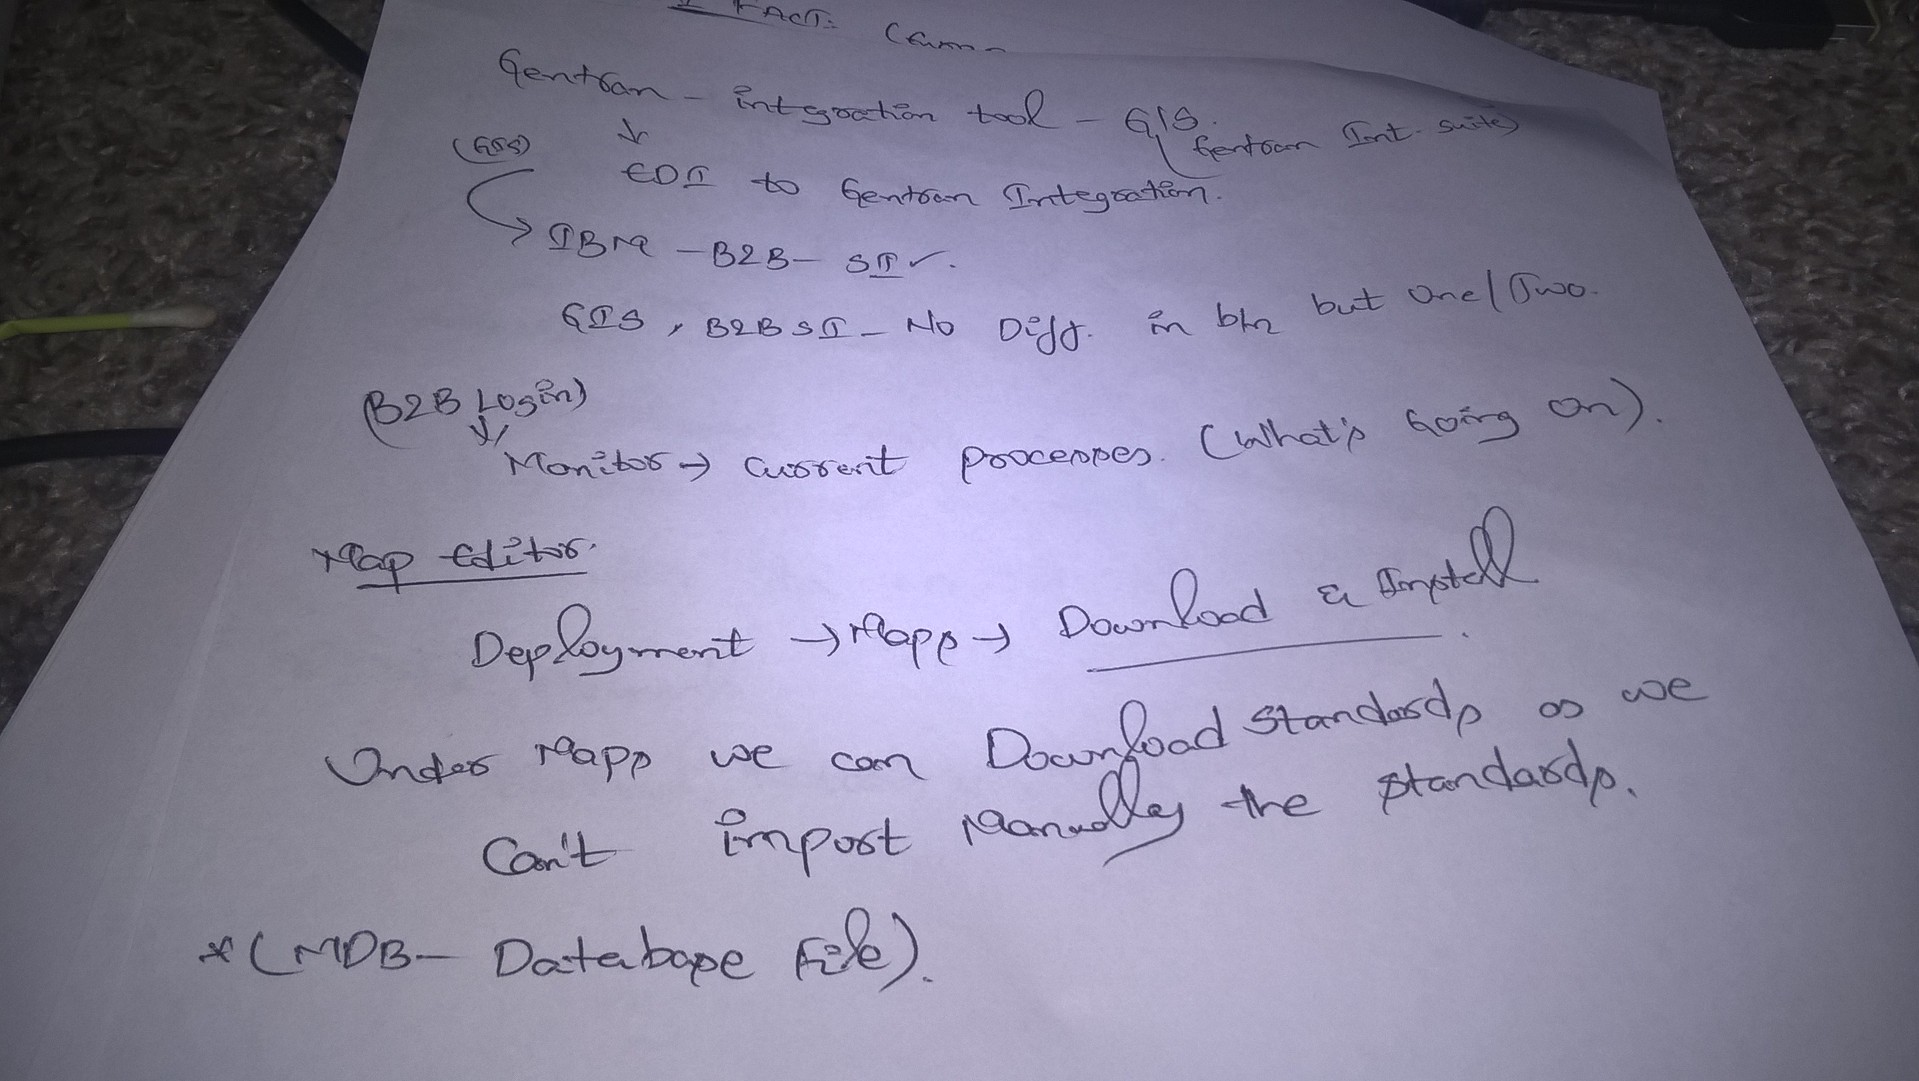 FACT:
Gentran - integration tool - GIS.
(Gentran Int. Suite)
(GIS) ↓
EDI to Gentran Integration.
→ IBM - B2B - SI ✓.
GIS, B2B SI - No Diff. in btn but One/Two.
(B2B Login)
↓
Monitor → current processes. (What's Going on).
Map Editor.
Deployment → Maps → Download & Install.
Under Maps we can Download Standards as we
Can't import Manually the standards.
*(MDB - Database File).